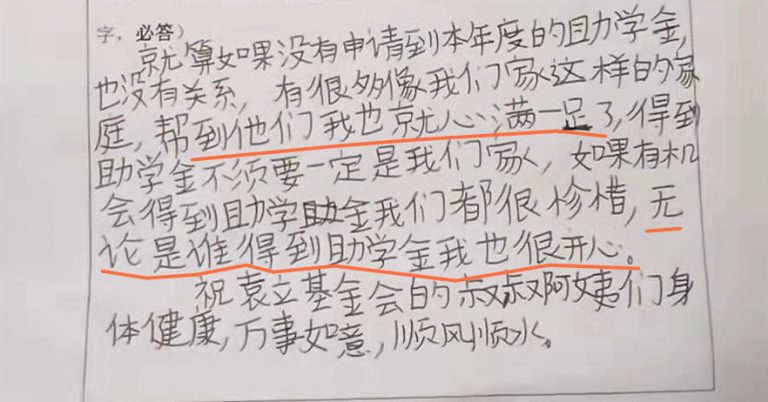 字，必答）
就算如果没有申请到本年度的助学金，
也没有关系，有很多像我们家这样的家
庭，帮到他们我也就心满一足了，得到
助学金不须要一定是我们家，如果有机
会得到助学助金我们都很珍惜，无
论是谁得到助学金我也很开心。
祝袁立基金会的叔叔阿姨们身
体健康，万事如意，顺风顺水。